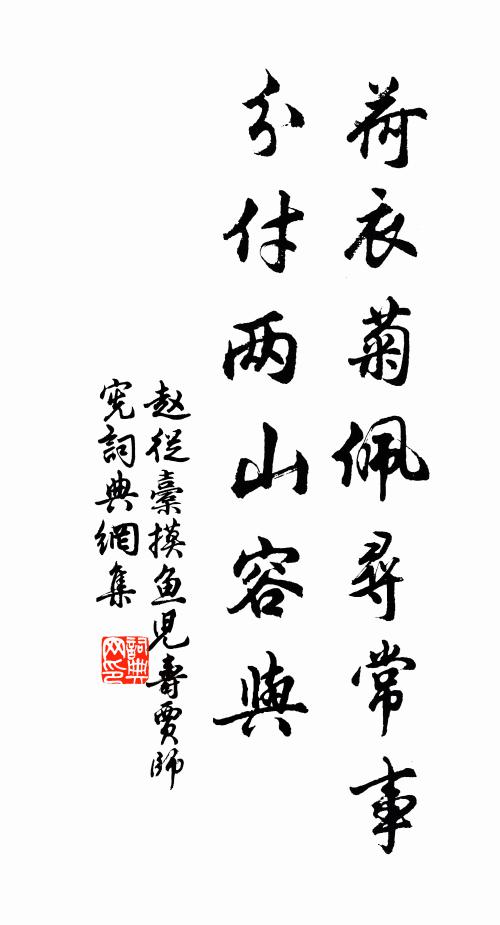 荷衣菊佩尋常事
分付两山容與
赵從橐摸魚児壽賈師
宪詞典網集
詞典网印